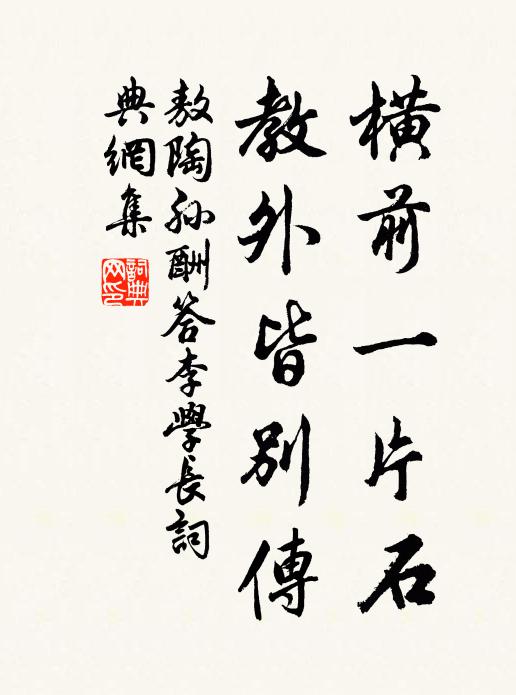 橫前一片石
教外皆別傳
敖陶孫酬答李學長詞
典網集
詞典
网印